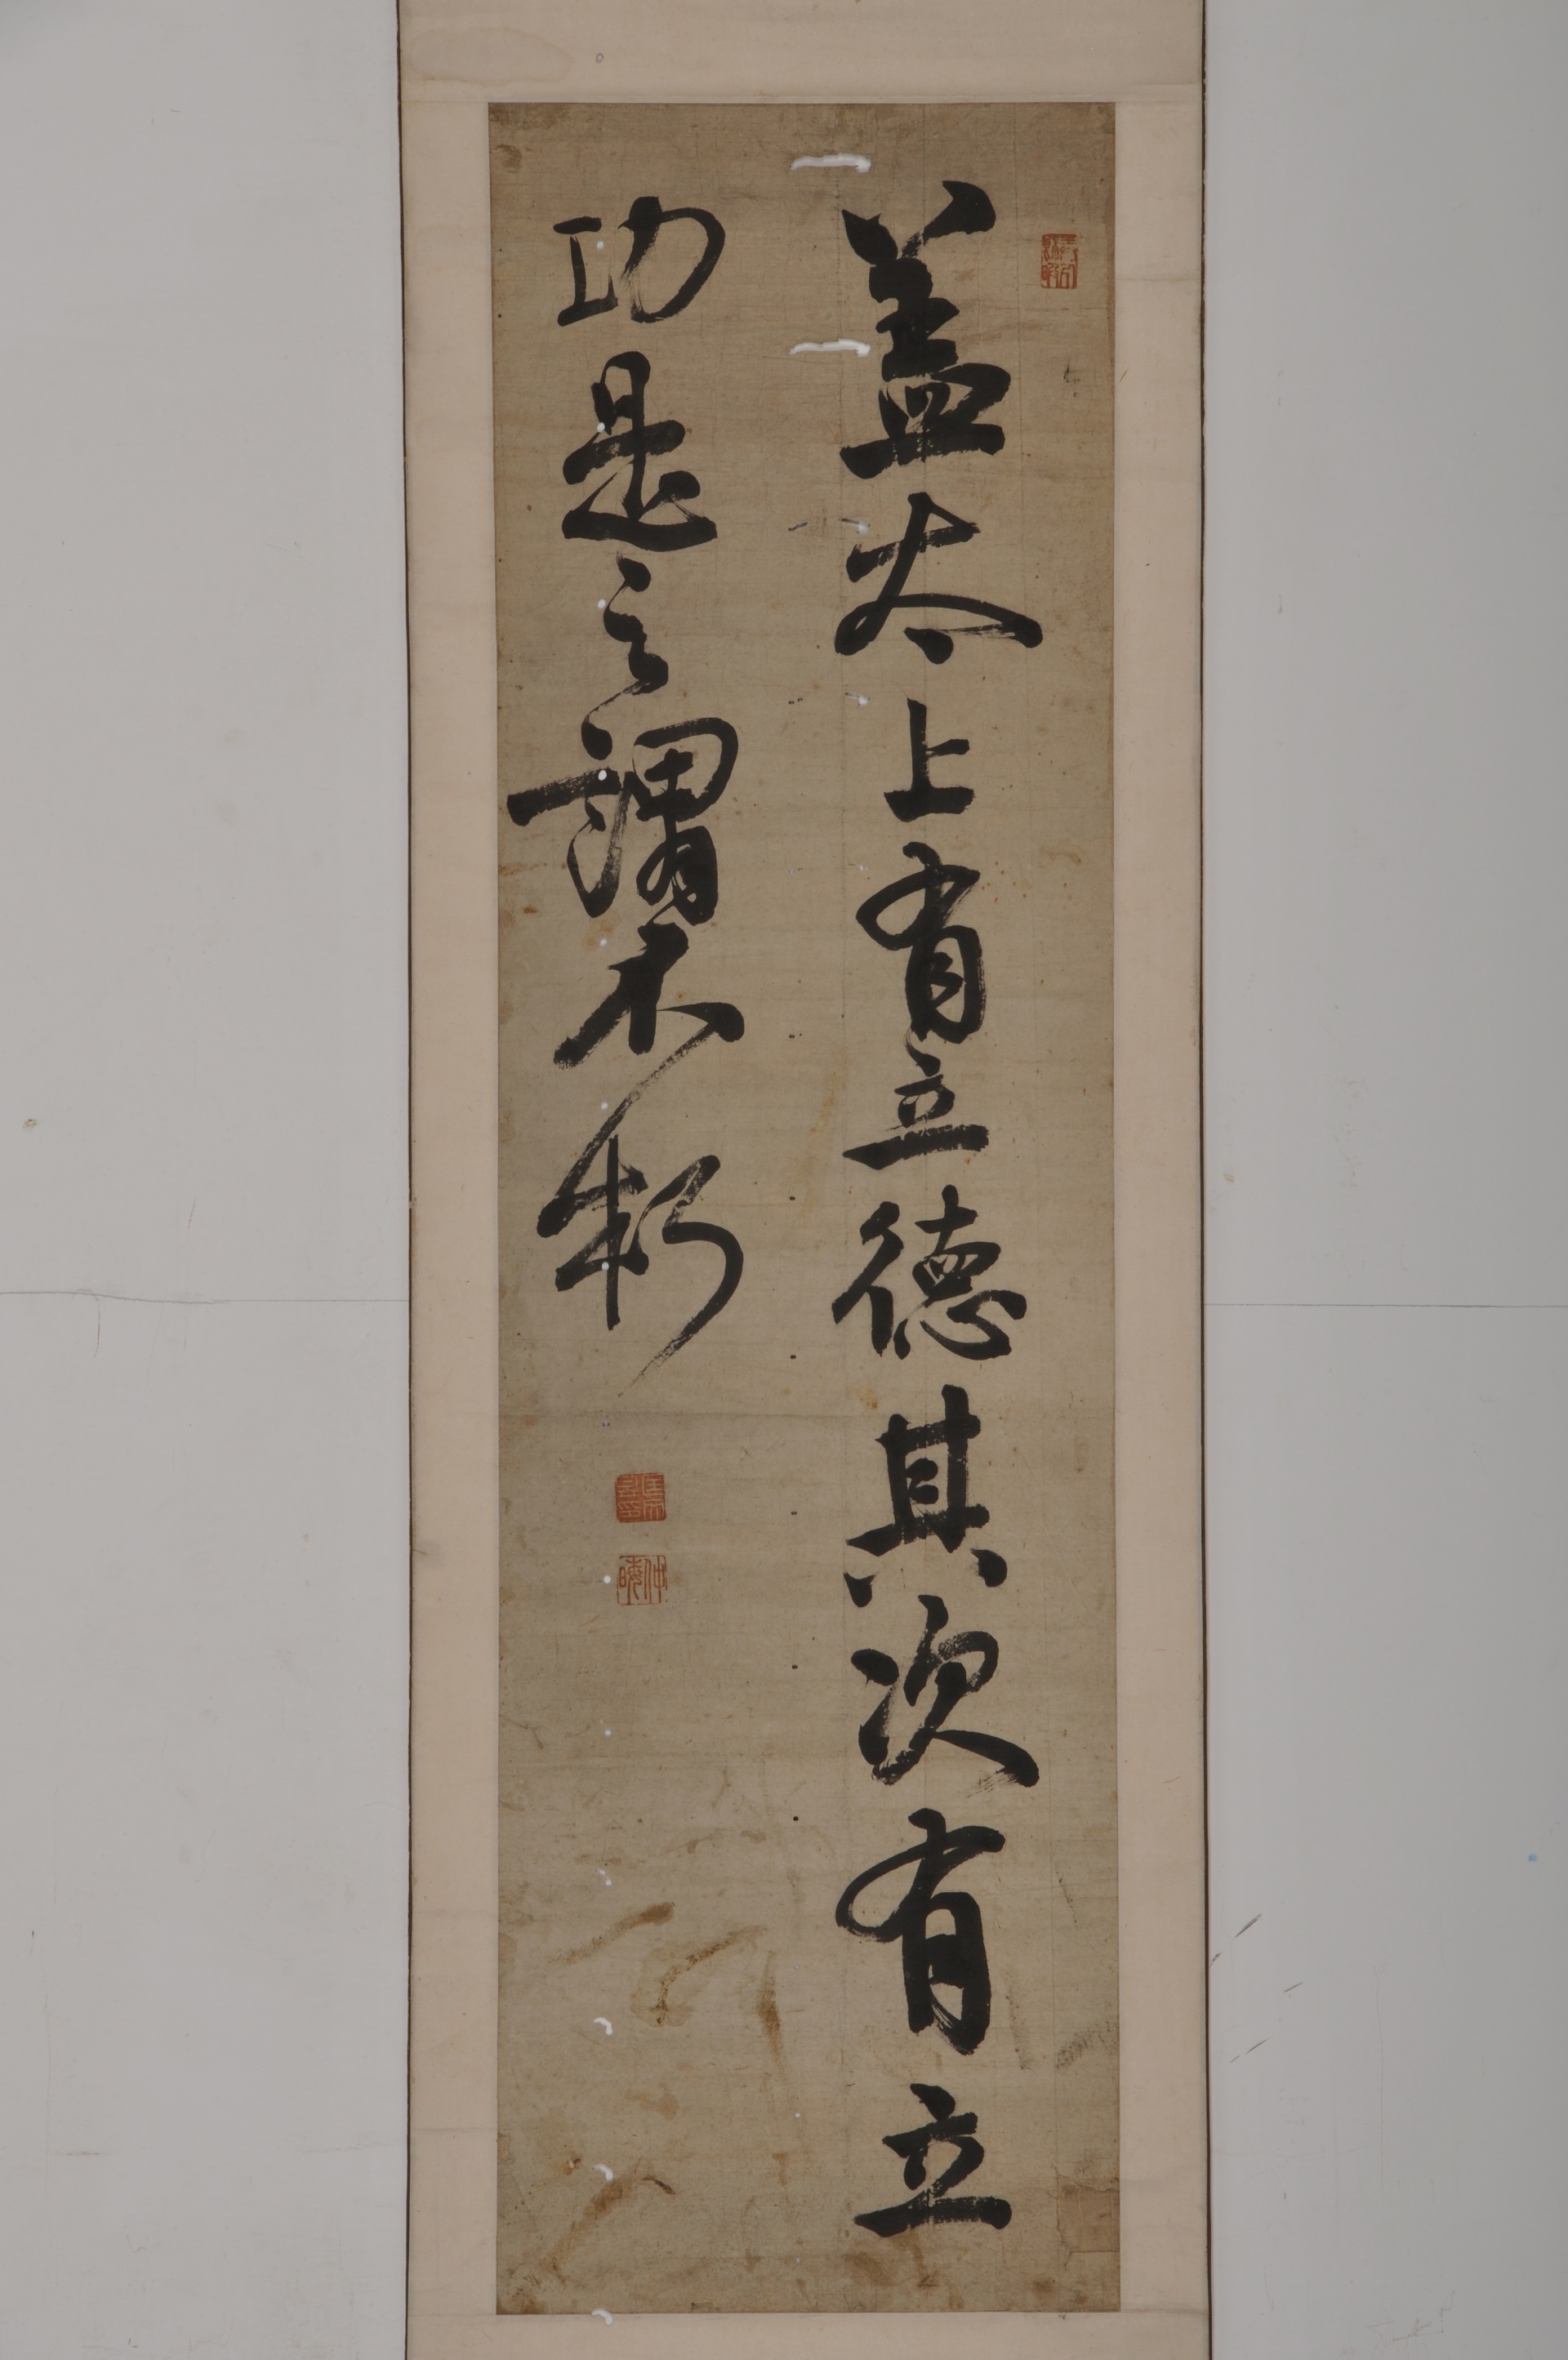 盖太上有立德其次有立
功是之謂不朽